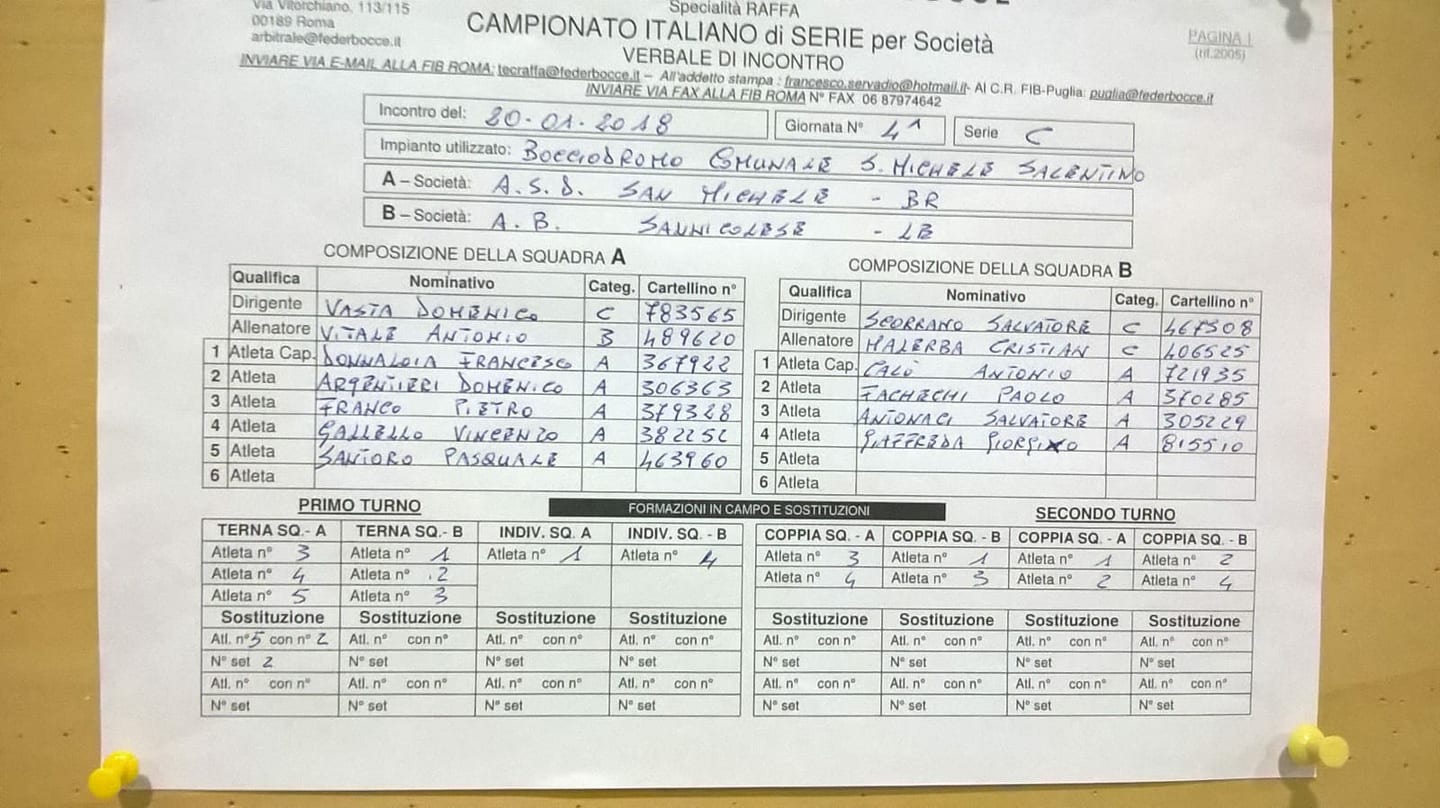 Via Vitorchiano, 113/115
00189 Roma
arbitrale@federbocce.it
Specialità RAFFA
CAMPIONATO ITALIANO di SERIE per Società
VERBALE DI INCONTRO
PAGINA 1
(rif.2005)
INVIARE VIA E-MAIL ALLA FIB ROMA: tecraffa@federbocce.it – All'addetto stampa : francesco.servadio@hotmail.it- Al C.R. FIB-Puglia: puglia@federbocce.it
INVIARE VIA FAX ALLA FIB ROMA N° FAX 06 87974642
Incontro del: 20-01-2018 Giornata N° 4^ Serie C
Impianto utilizzato: BOCCIODROMO COMUNALE S. MICHELE SALENTINO
A – Società: A.S.D. SAN MICHELE - BR
B – Società: A.B. SANNICOLESE - LE
COMPOSIZIONE DELLA SQUADRA A
Qualifica Nominativo Categ. Cartellino n°
Dirigente VASTA DOMENICO C 783565
Allenatore VITALE ANTONIO B 489620
1 Atleta Cap. DONNALOIA FRANCESCO A 367922
2 Atleta ARGENTIERI DOMENICO A 306363
3 Atleta FRANCO PIETRO A 379328
4 Atleta GALLELLO VINCENZO A 382252
5 Atleta SANTORO PASQUALE A 463960
6 Atleta
COMPOSIZIONE DELLA SQUADRA B
Qualifica Nominativo Categ. Cartellino n°
Dirigente SCORRANO SALVATORE C 467308
Allenatore MALERBA CRISTIAN C 406525
1 Atleta Cap. CALÒ ANTONIO A 721935
2 Atleta FACHECHI PAOLO A 370285
3 Atleta ANTONACI SALVATORE A 305229
4 Atleta GIAFFREDA A 815510
5 Atleta
6 Atleta
PRIMO TURNO FORMAZIONI IN CAMPO E SOSTITUZIONI SECONDO TURNO
TERNA SQ.- A TERNA SQ.- B INDIV. SQ. A INDIV. SQ. - B
Atleta n° 3 Atleta n° 1 Atleta n° 1 Atleta n° 4
Atleta n° 4 Atleta n° 2
Atleta n° 5 Atleta n° 3
Sostituzione Sostituzione Sostituzione Sostituzione
Atl. n° 5 con n° 2 Atl. n° con n° Atl. n° con n° Atl. n° con n°
N° set 2 N° set N° set N° set
Atl. n° con n° Atl. n° con n° Atl. n° con n° Atl. n° con n°
N° set N° set N° set N° set
COPPIA SQ. - A COPPIA SQ. - B COPPIA SQ. - A COPPIA SQ. - B
Atleta n° 3 Atleta n° 1 Atleta n° 1 Atleta n° 2
Atleta n° 4 Atleta n° 3 Atleta n° 2 Atleta n° 4
Sostituzione Sostituzione Sostituzione Sostituzione
Atl. n° con n° Atl. n° con n° Atl. n° con n° Atl. n° con n°
N° set N° set N° set N° set
Atl. n° con n° Atl. n° con n° Atl. n° con n° Atl. n° con n°
N° set N° set N° set N° set